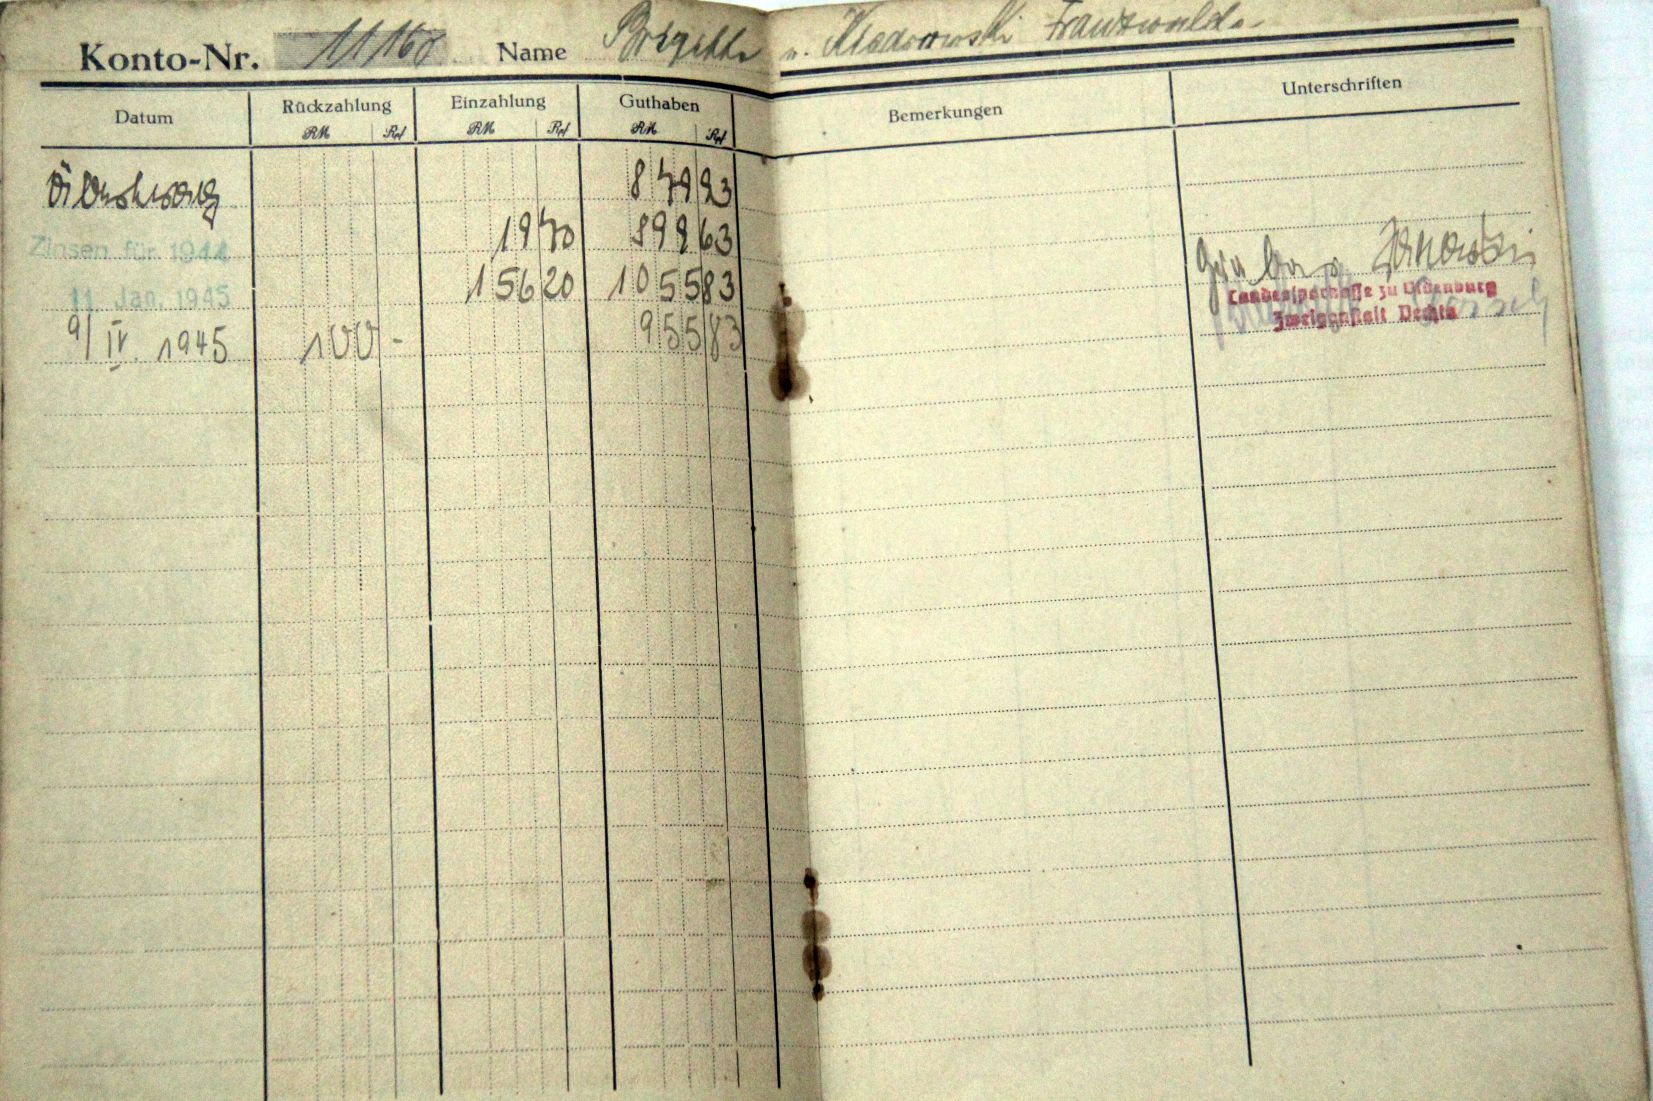 Konto-Nr. 11160 Name Brigitte v. Kiedrowski Franzwalde.
Datum Rückzahlung Einzahlung Guthaben Bemerkungen Unterschriften
RM Rpf RM Rpf RM Rpf
879 93
Zinsen für 1944 19 70 899 63
11. Jan. 1945 156 20 1055 83
Landessparkasse zu Oldenburg
9/IV. 1945 100 - 955 83
Zweiganstalt Vechta